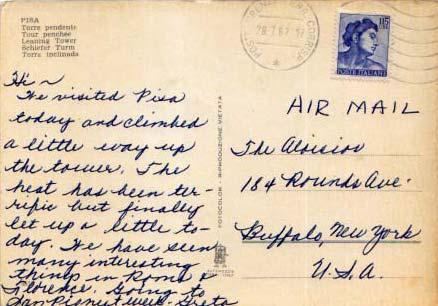 PISA
Torre pendente
Tour penchée
Leaning Tower
Schiefer Turm
Torre inclinada
115
POSTE ITALIANE
AIR MAIL
Hi ~
We visited Pisa
today and climbed
a little way up
the tower. The
heat has been ter-
rific but finally
let up a little to-
day. We have seen
many interesting
things in Rome &
Florence. Going to
San Remo next week.
The Aloisios
184 Rounds Ave.
Buffalo, New York
U.S.A.
FOTOCOLOR - RIPRODUZIONE VIETATA